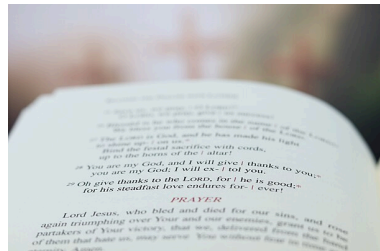 27 The LORD is God, and he has made his light
to shine up- | on us;*
Bind the festal sacrifice with cords,
up to the horns of the | altar!
28 You are my God, and I will give | thanks to you;*
you are my God; I will ex- | tol you.
29 Oh give thanks to the LORD, for | he is good;*
for his steadfast love endures for- | ever!
PRAYER
Lord Jesus, who bled and died for our sins, and rose
again triumphing over Your and our enemies, grant us to be
partakers of Your victory, that we, delivered from the hand
of them that hate us, may serve You without fear in
Amen.